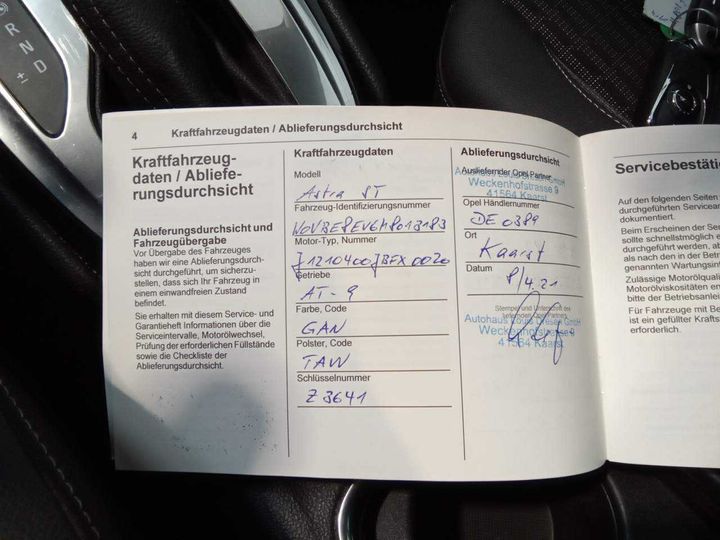 R
N
D
±
4 Kraftfahrzeugdaten / Ablieferungsdurchsicht
Kraftfahrzeug-
daten / Abliefe-
rungsdurchsicht
Ablieferungsdurchsicht und
Fahrzeugübergabe
Vor Übergabe des Fahrzeuges
haben wir eine Ablieferungsdurch-
sicht durchgeführt, um sicherzu-
stellen, dass sich Ihr Fahrzeug in
einem einwandfreien Zustand
befindet.
Sie erhalten mit diesem Service- und
Garantieheft Informationen über die
Serviceintervalle, Motorölwechsel,
Prüfung der erforderlichen Füllstände
sowie die Checkliste der
Ablieferungsdurchsicht.
Kraftfahrzeugdaten
Modell
Astra ST
Fahrzeug-Identifizierungsnummer
Motor-Typ, Nummer
Getriebe
AT-9
Farbe, Code
GAN
Polster, Code
TAW
Schlüsselnummer
Z3641
Ablieferungsdurchsicht
Ausliefernder Opel Partner
Autohaus Louis Dresen GmbH
Weckenhofstrasse 9
41564 Kaarst
Opel Händlernummer
DE0389
Ort
Kaarst
Datum
8/4.21
Stempel und Unterschrift des
Autohaus Louis Dresen GmbH
Weckenhofstrasse 9
41564 Kaarst
Servicebestäti
Auf den folgenden Seiten
durchgeführten Servicear
dokumentiert.
Beim Erscheinen der Ser
sollte schnellstmöglich e
durchgeführt werden, ab
als nach den in der Betri
genannten Wartungsint
Zulässige Motorölqualit
Motorölviskositäten en
bitte der Betriebsanle
Für Fahrzeuge mit Be
ist ein gefüllter Krafts
erforderlich.